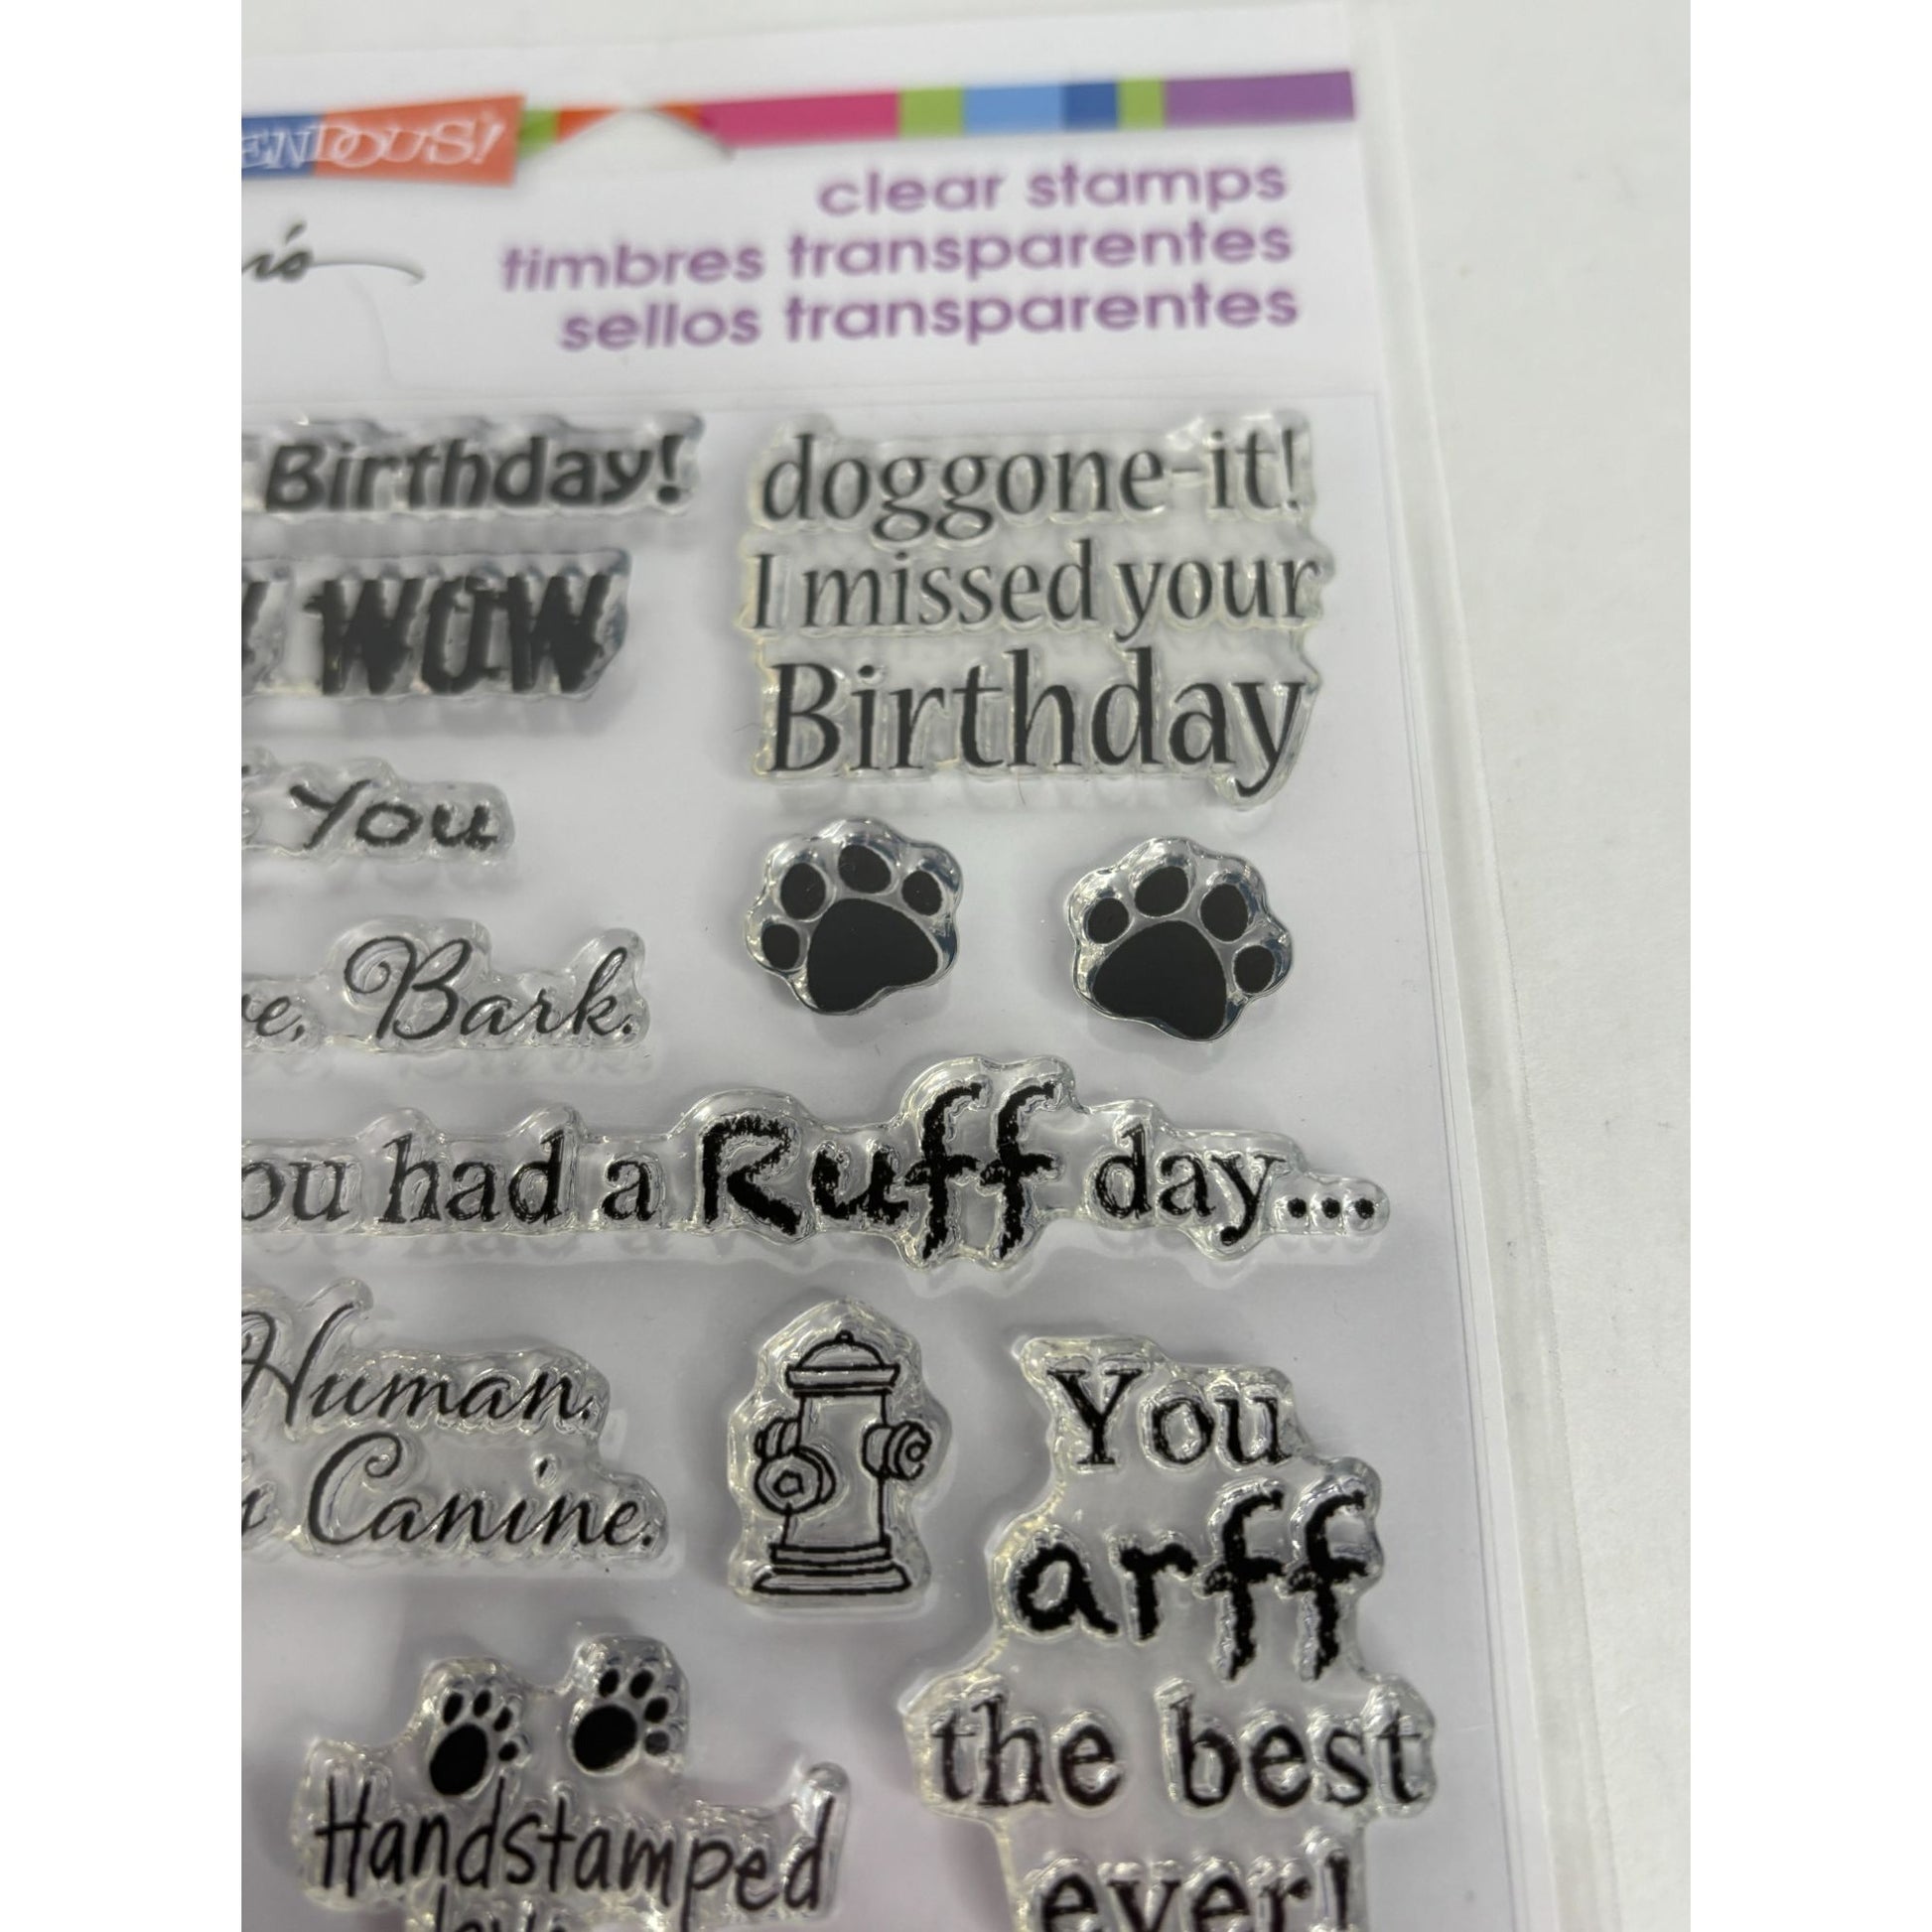 ENDOUS!
clear stamps
timbres transparentes
sellos transparentes
is
Birthday!
doggone-it!
I missed your
Birthday
WOW
You
e, Bark.
ou had a Ruff day...
Human.
Canine.
You
arff
the best
ever!
Handstamped